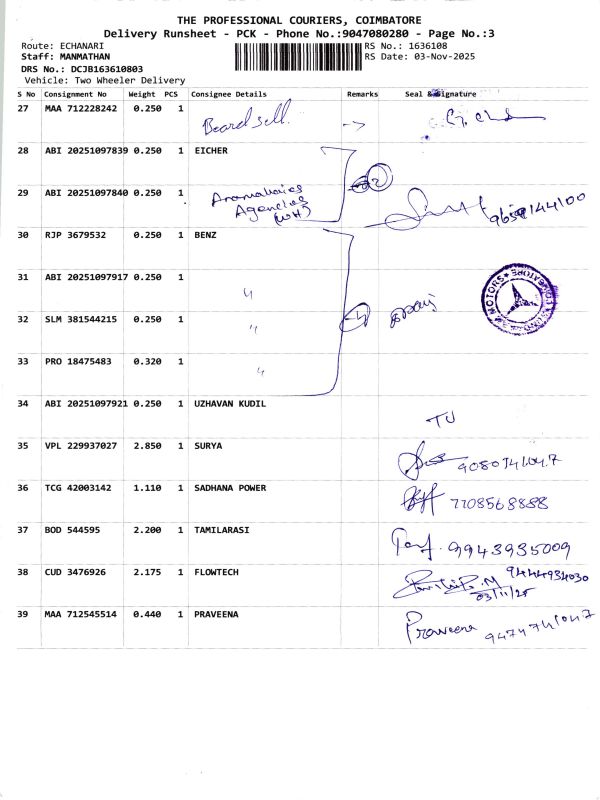 THE PROFESSIONAL COURIERS, COIMBATORE
Delivery Runsheet - PCK - Phone No.:9047080280 - Page No.:3
Route: ECHANARI RS No.: 1636108
Staff: MANMATHAN RS Date: 03-Nov-2025
DRS No.: DCJB163610803
Vehicle: Two Wheeler Delivery
S No Consignment No Weight PCS Consignee Details Remarks Seal & Signature
27 MAA 712228242 0.250 1
28 ABI 20251097839 0.250 1 EICHER
29 ABI 20251097840 0.250 1 Agencies
(WH)
30 RJP 3679532 0.250 1 BENZ
31 ABI 20251097917 0.250 1 "
32 SLM 381544215 0.250 1 " 4
MOTORS
33 PRO 18475483 0.320 1 "
34 ABI 20251097921 0.250 1 UZHAVAN KUDIL
35 VPL 229937027 2.850 1 SURYA
36 TCG 42003142 1.110 1 SADHANA POWER 7708568888
37 BOD 544595 2.200 1 TAMILARASI 9943935009
38 CUD 3476926 2.175 1 FLOWTECH 9444934030
03/11/25
39 MAA 712545514 0.440 1 PRAVEENA Praveena